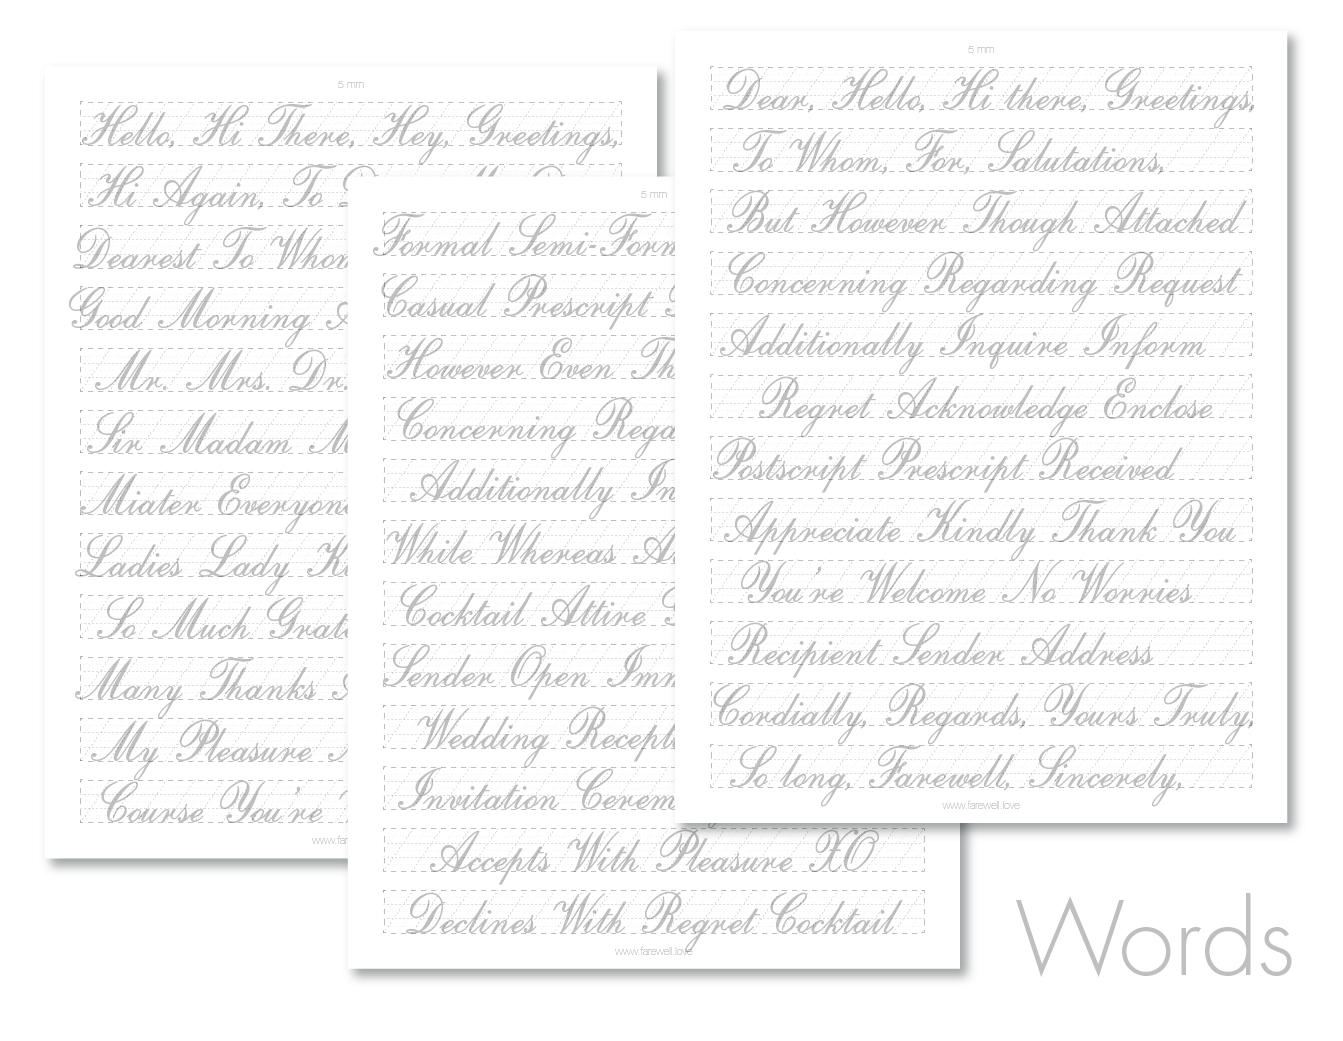 5 mm
Hello, Hi There, Hey, Greetings,
Hi Again, To
Dearest To Whom
Good Morning
Mr. Mrs. Dr.
Sir Madam
Miater Everyon
Ladies Lady
So Much Grat
Many Thanks
My Pleasure
Course You're
www.far
5 mm
Formal Semi-Form
Casual Prescript
However Even Th
Concerning Rega
Additionally In
While Whereas
Cocktail Attire
Sender Open Imm
Wedding Recept
Invitation Cerem
Accepts With Pleasure XO
Declines With Regret Cocktail
www.farewell.love
5 mm
Dear, Hello, Hi there, Greetings,
To Whom, For, Salutations,
But However Though Attached
Concerning Regarding Request
Additionally Inquire Inform
Regret Acknowledge Enclose
Postscript Prescript Received
Appreciate Kindly Thank You
You're Welcome No Worries
Recipient Sender Address
Cordially, Regards, Yours Truly,
So long, Farewell, Sincerely,
www.farewell.love
Words